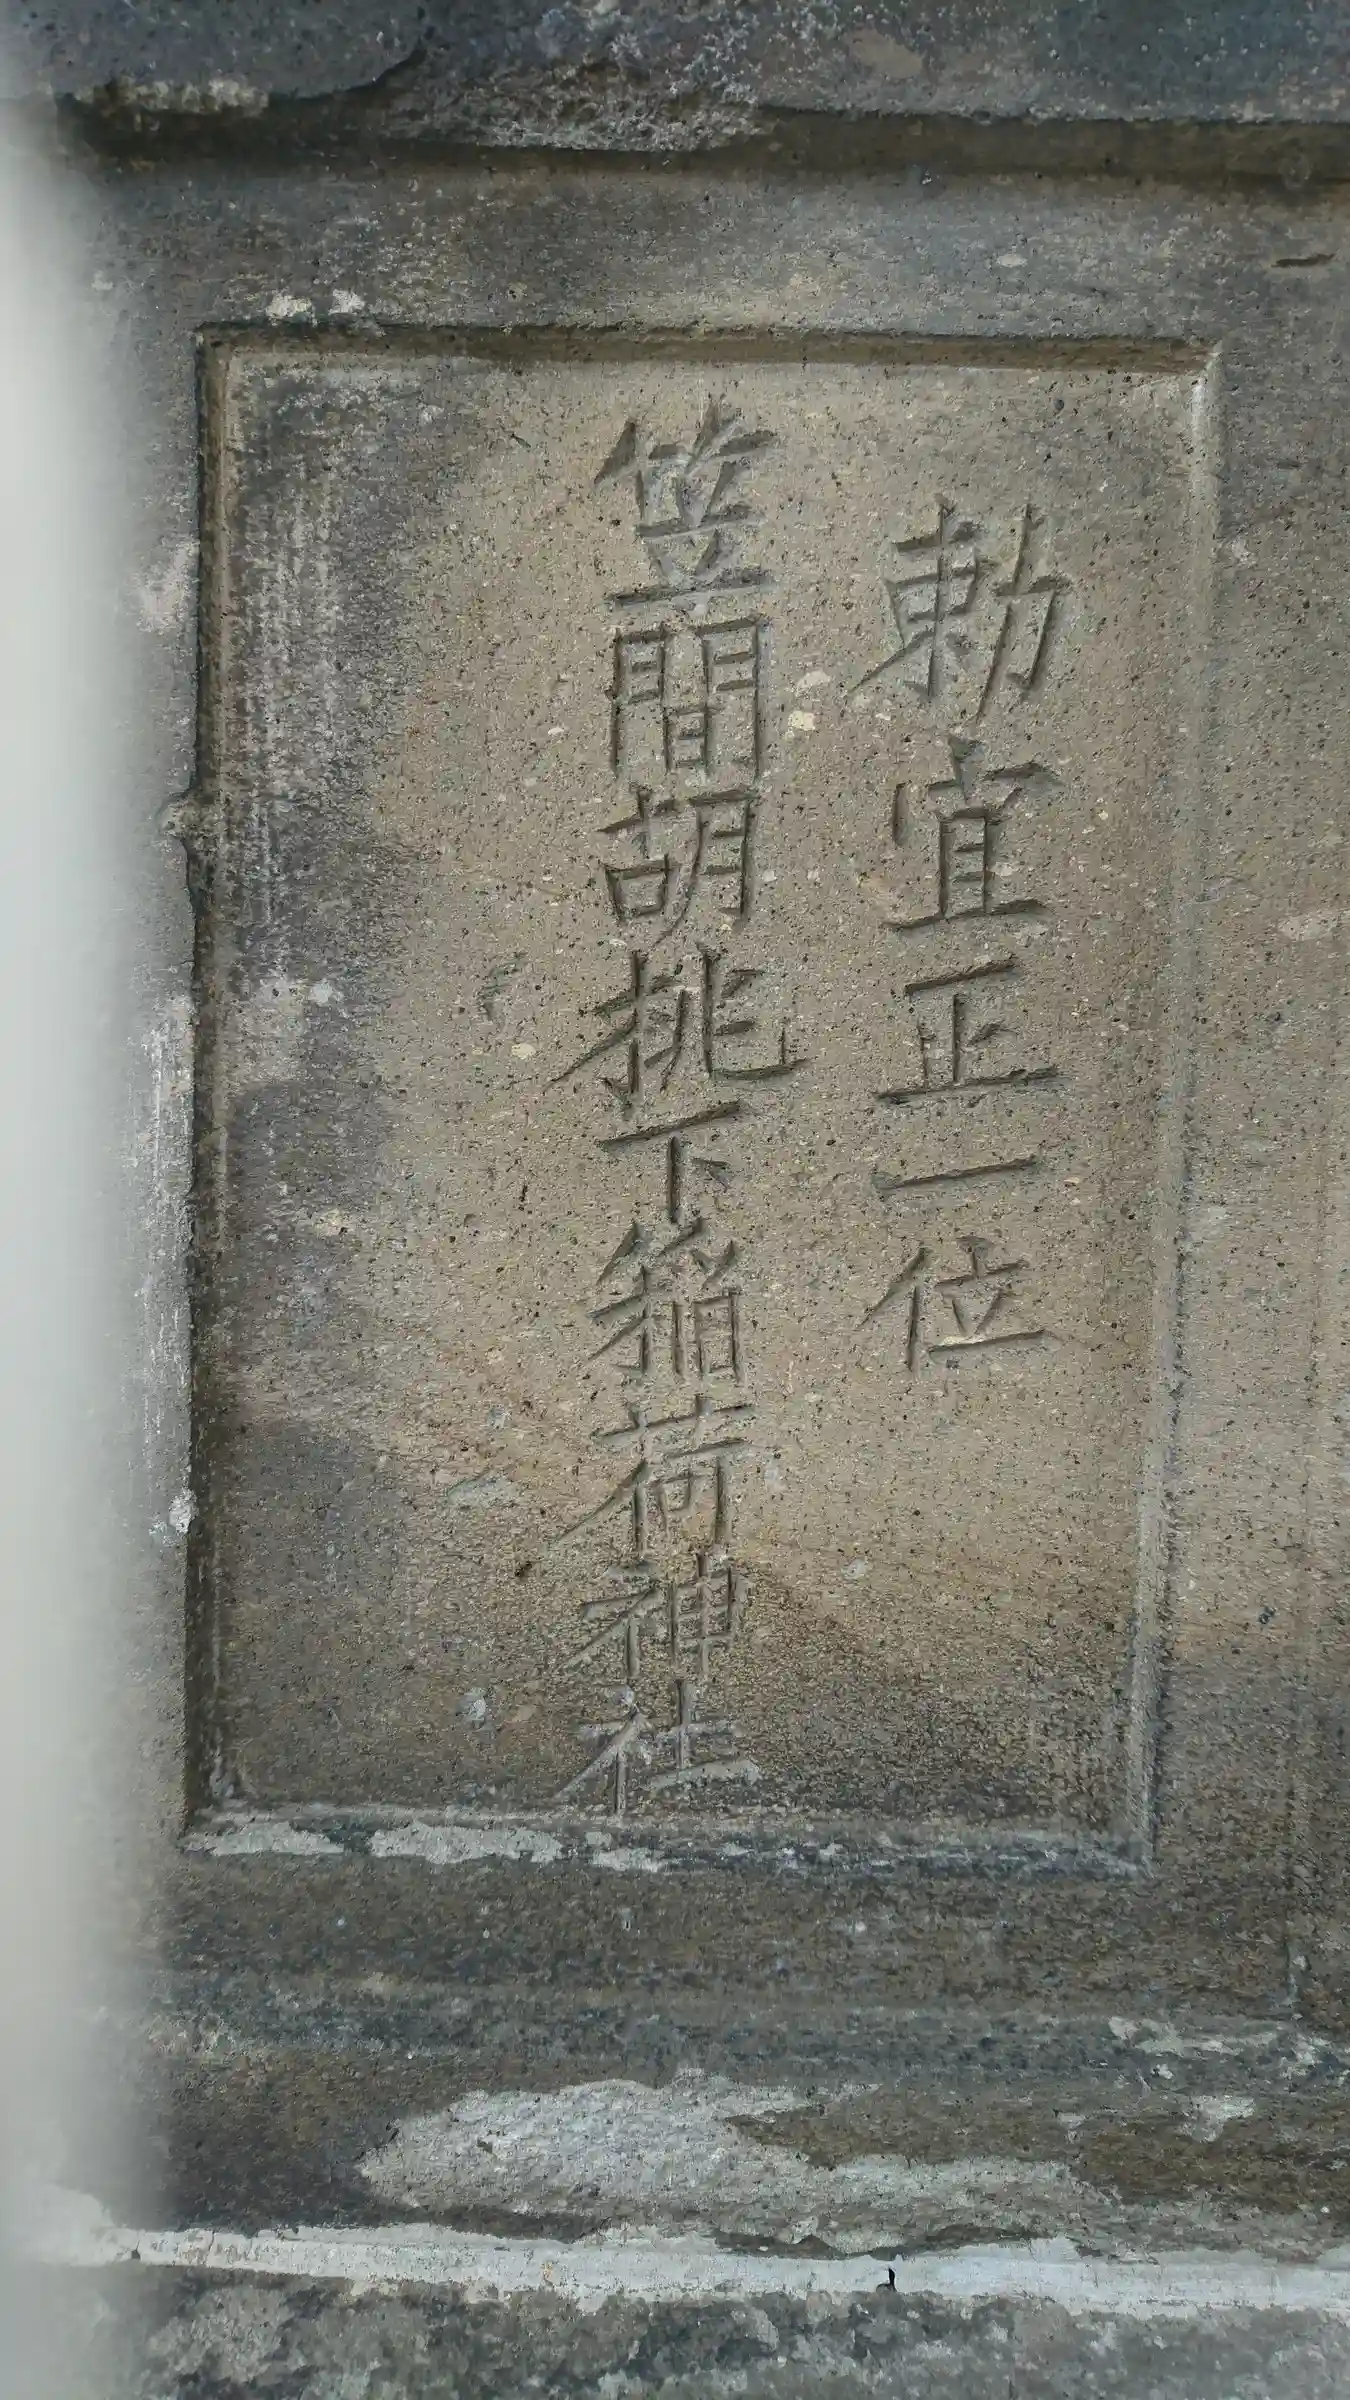 勅宜正一位
笠間胡挑下稲荷神社